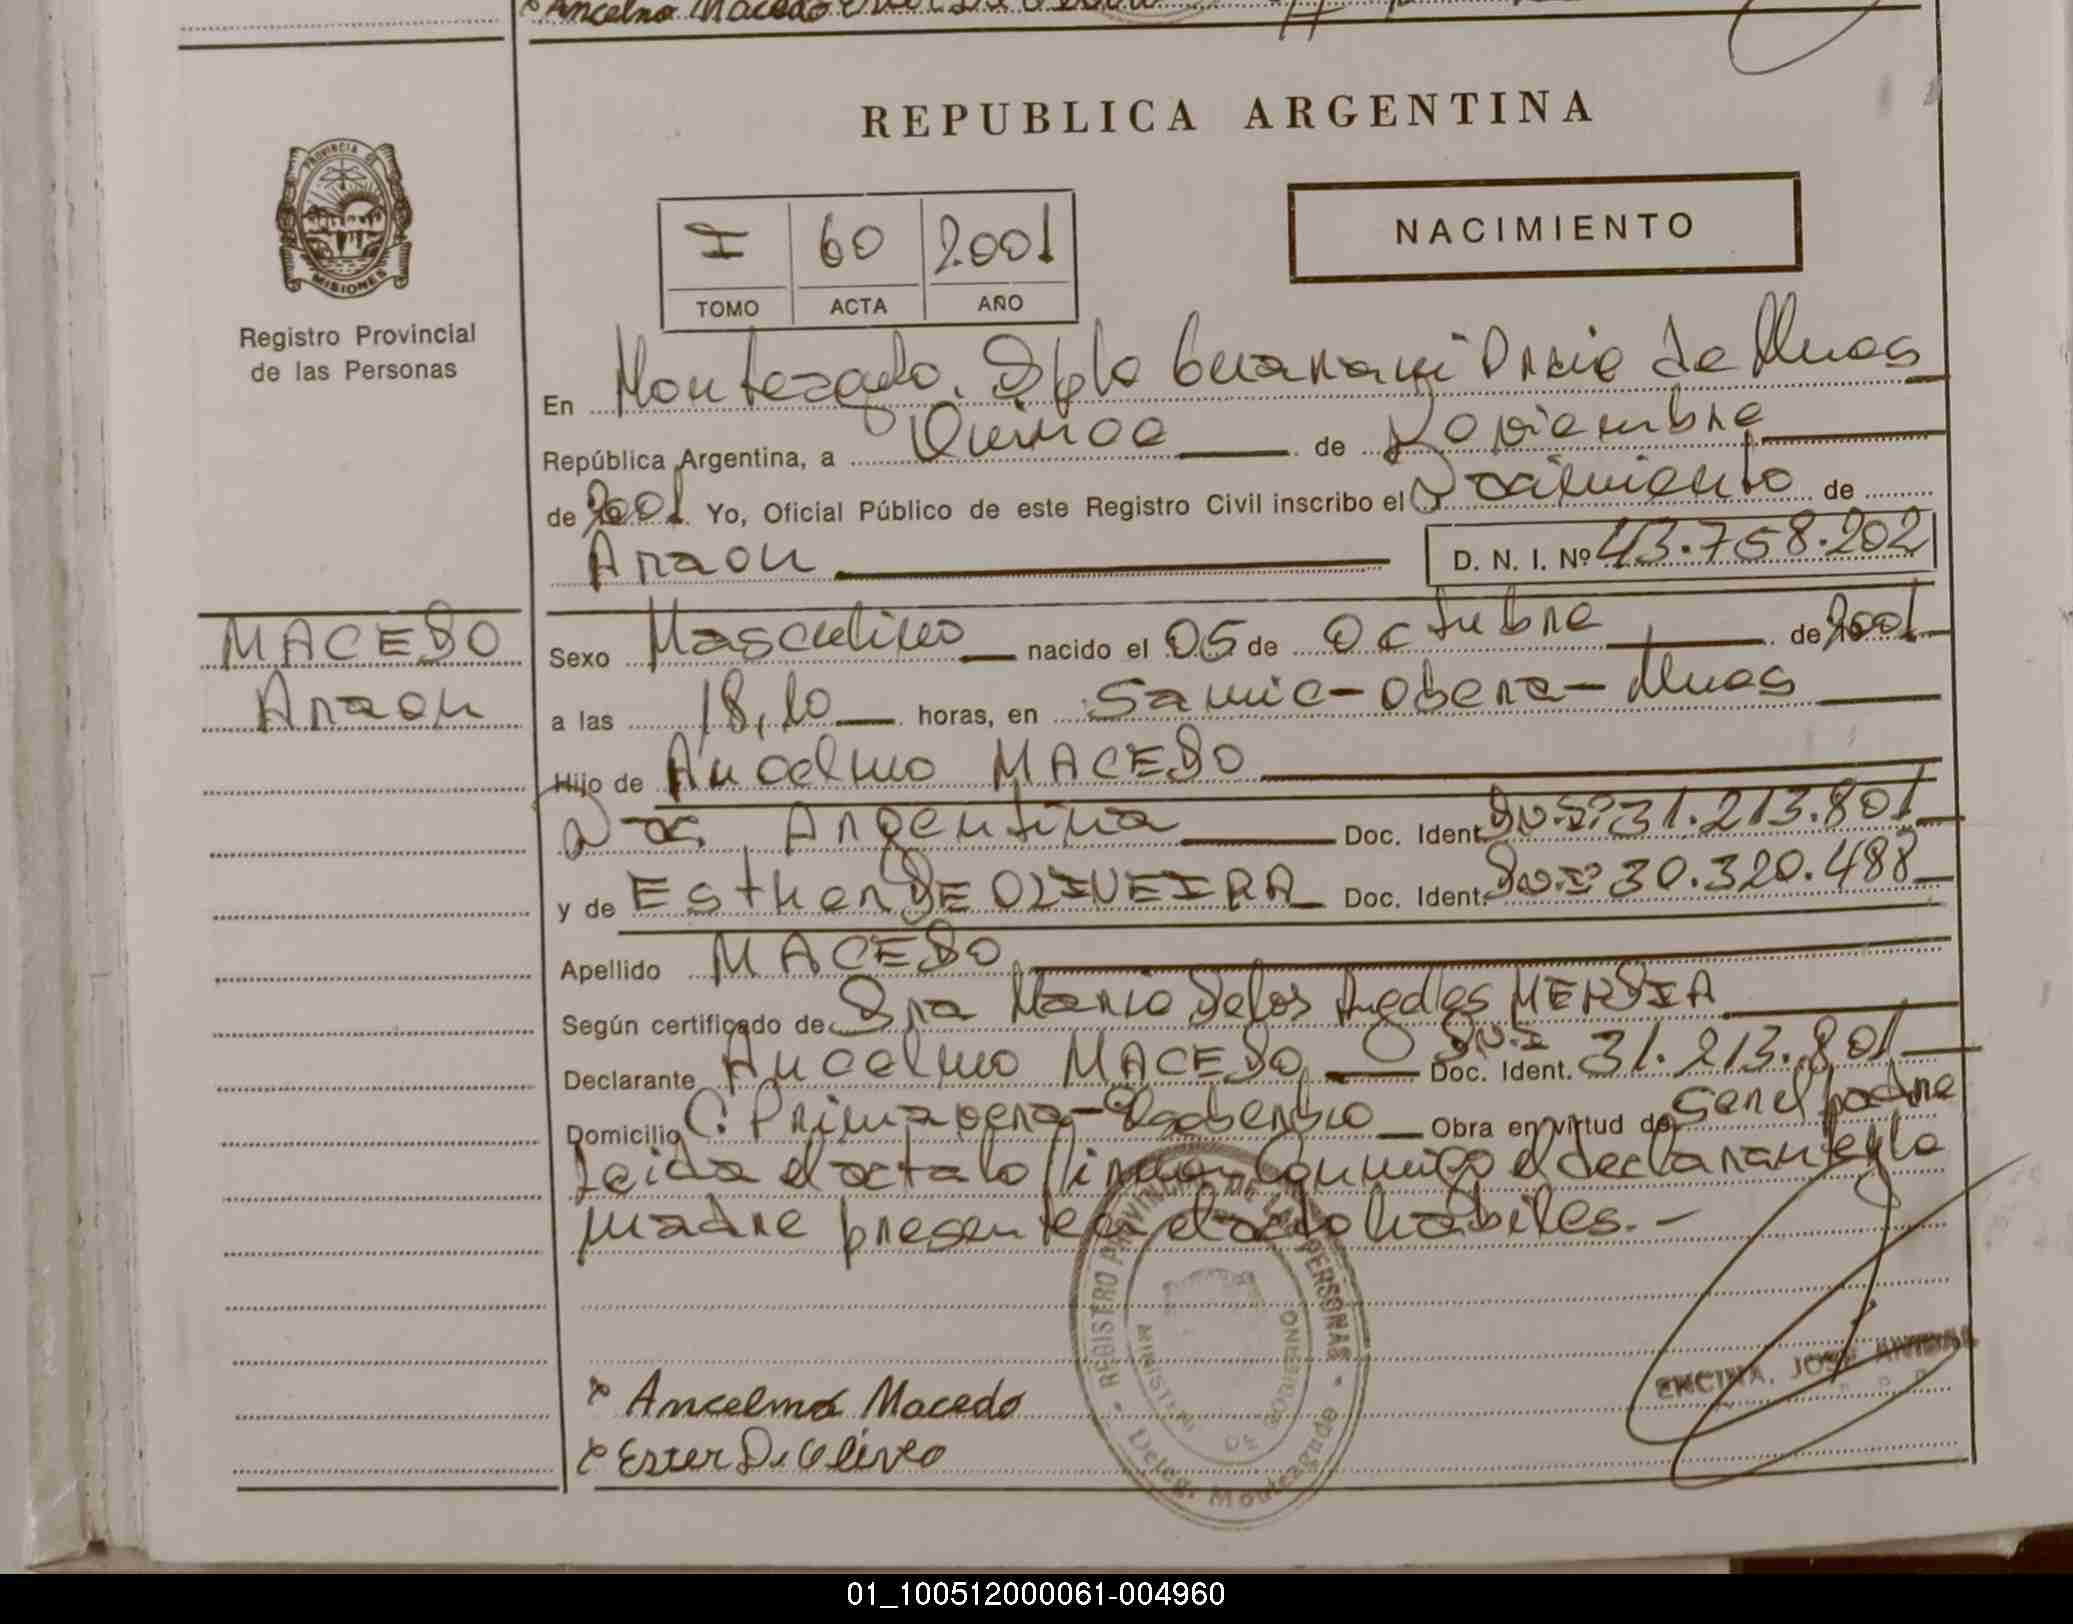 Ancelmo Macedo
REPUBLICA ARGENTINA
PROVINCIA DE
MISIONES
Registro Provincial
de las Personas
NACIMIENTO
I 60 2001
TOMO ACTA AÑO
En Monteagudo. Dpto Guarani Prcia de Mnes
República Argentina, a Quince de Noviembre
de 2001 Yo, Oficial Público de este Registro Civil inscribo el Nacimiento de
Araon D. N. I. Nº 43.758.202
MACEDO
Araon
Sexo Masculino nacido el 05 de Octubre de 2001
a las 18,10 horas, en Samic-Obera-Mnes
Hijo de Ancelmo MACEDO
Nac Argentina Doc. Ident. DNIº 31.213.801
y de Esther DE OLIVEIRA Doc. Ident. DNIº 30.320.488
Apellido MACEDO
Según certificado de Dra Maria Delos Angeles
Declarante Ancelmo MACEDO Doc. Ident. DNI 31.213.801
Domicilio C. Primavera- Obra en virtud de ser el padre
Leida el acta la firman Conmigo el declarante y la
madre presente a el acto habiles.-
REGISTRO PROVINCIAL DE LAS PERSONAS
MINISTERIO DE GOBIERNO
Deleg. Monteagudo
x Ancelmo Macedo
x Ester D.
ENCINA, JOSE ANIBAL
01_100512000061-004960